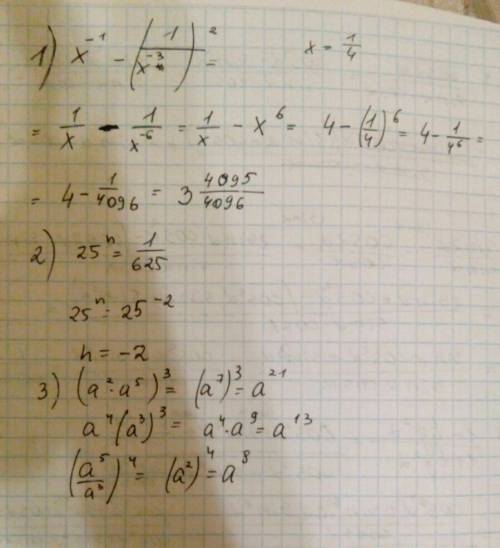 1) x⁻¹ - (1/x⁻³)² = x = 1/4
= 1/x - 1/x⁻⁶ = 1/x - x⁶ = 4 - (1/4)⁶ = 4 - 1/4⁶ =
= 4 - 1/4096 = 3 4095/4096
2) 25ⁿ = 1/625
25ⁿ = 25⁻²
n = -2
3) (a² · a⁵)³ = (a⁷)³ = a²¹
a⁴(a³)³ = a⁴ · a⁹ = a¹³
(a⁵/a³)⁴ = (a²)⁴ = a⁸